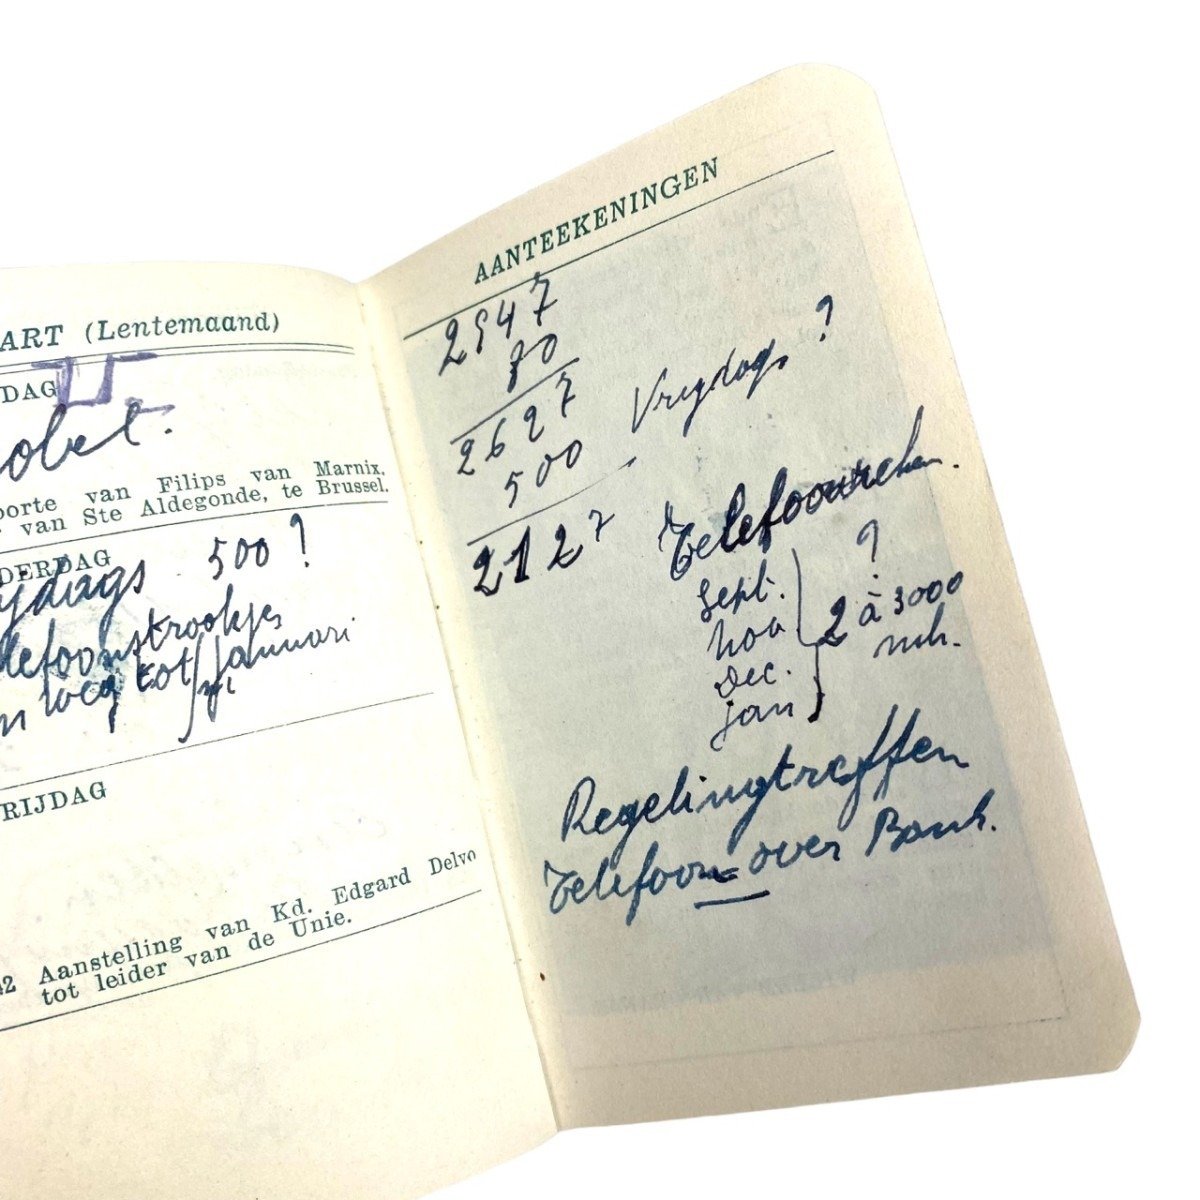 ART (Lentemaand)
DAG
obet.
oorte van Filips van Marnix,
van Ste Aldegonde, te Brussel.
DERDAG
ydags 500 ?
lefoonstrookjes
n weg tot januari
RIJDAG
42 Aanstelling van Kd. Edgard Delvo
tot leider van de Unie.
AANTEEKENINGEN
2947
80
2627 Vrydags ?
500
2127
Telefoon
sept. ?
nov 2 à 3000
Dec. mk.
jan
Regeling treffen
Telefoon over Bank.